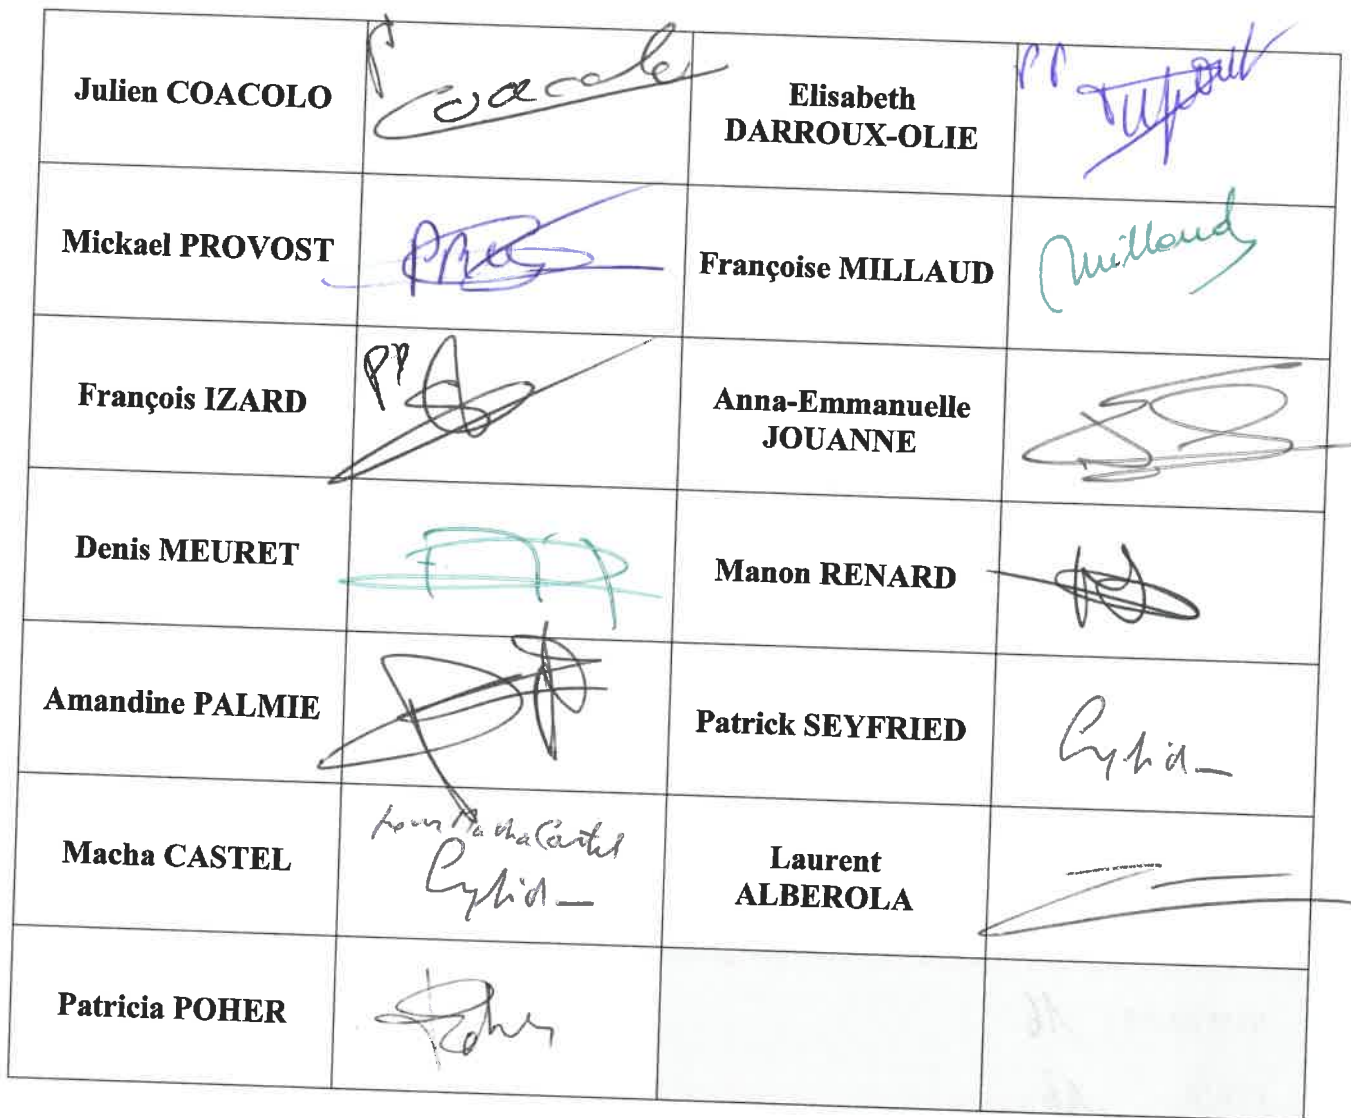 Julien COACOLO
P Coacolo
Elisabeth
DARROUX-OLIE
PP Dupont
Mickael PROVOST
Françoise MILLAUD
Millaud
François IZARD
PP
Anna-Emmanuelle
JOUANNE
Denis MEURET
Manon RENARD
Amandine PALMIE
Patrick SEYFRIED
Macha CASTEL
pour Macha Castel
Laurent
ALBEROLA
Patricia POHER
Poher